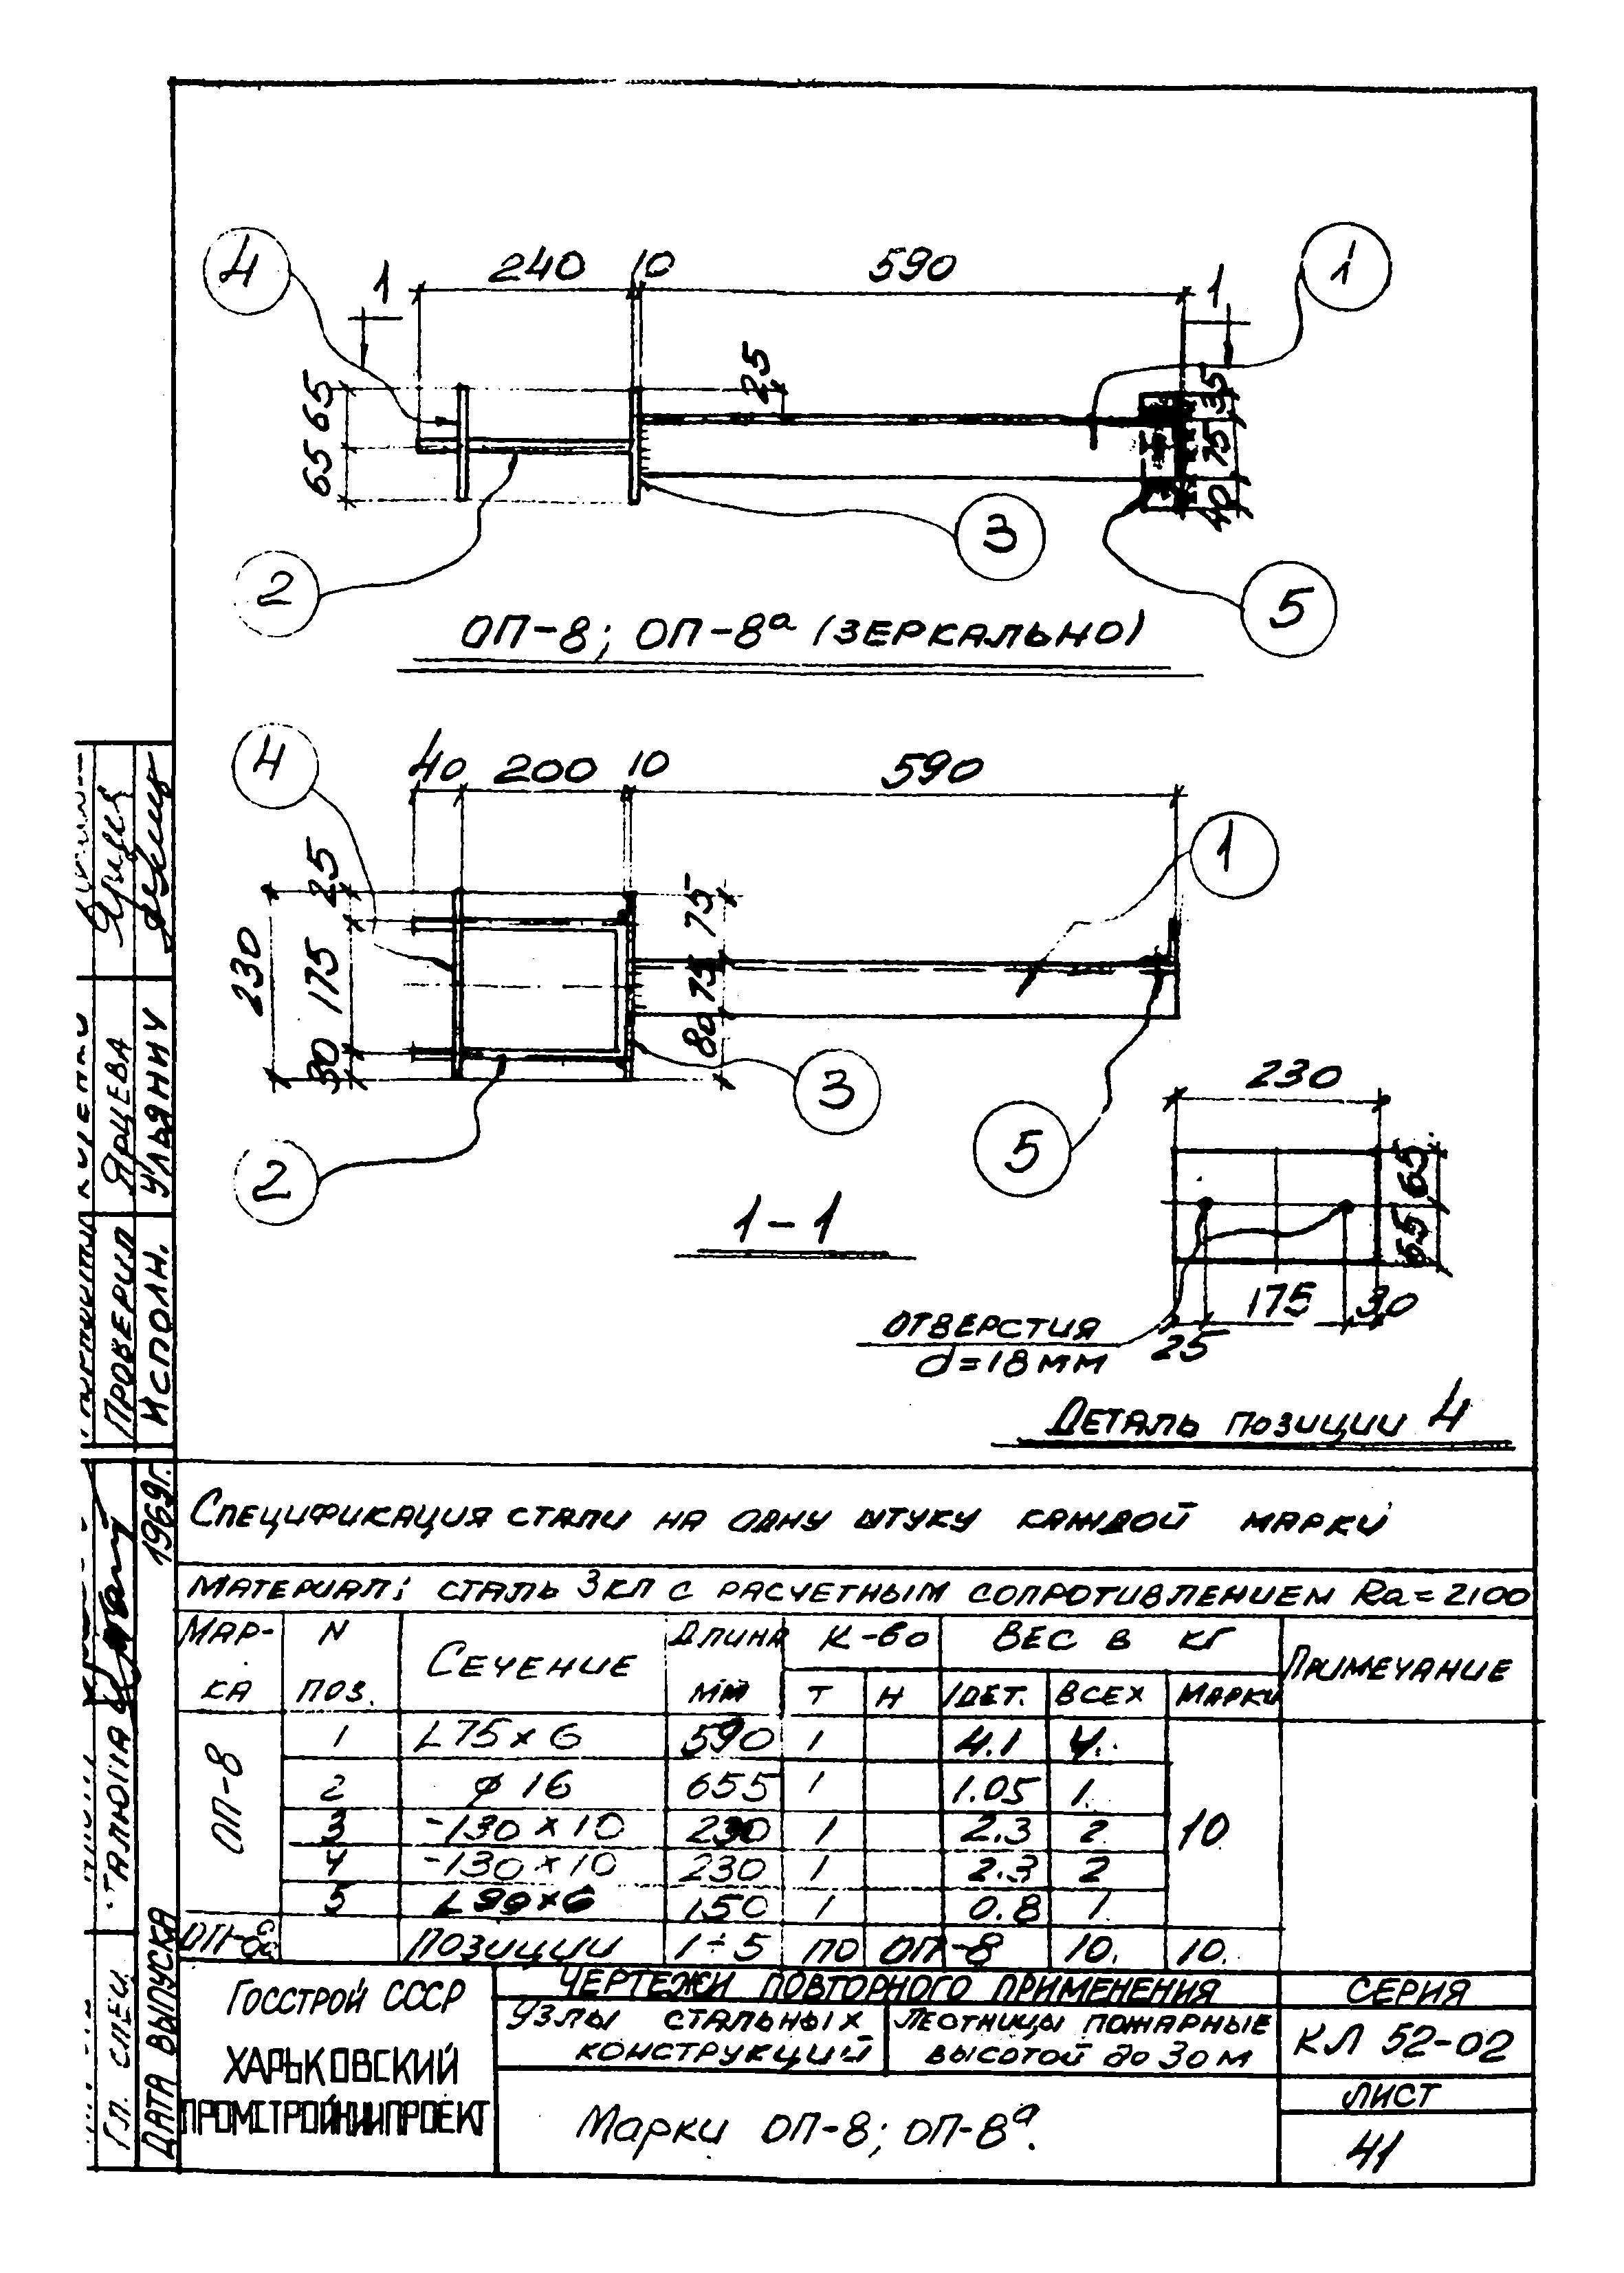 4
1
240
10
590
1
1
65
65
25
35
75
40
2
3
5
ОП-8; ОП-8а (ЗЕРКАЛЬНО)
4
40
200
10
590
1
25
175
30
230
75
75
80
3
2
5
1-1
230
65
65
175
30
25
ОТВЕРСТИЯ
d=18мм
ДЕТАЛЬ ПОЗИЦИИ 4
СПЕЦИФИКАЦИЯ СТАЛИ НА ОДНУ ШТУКУ КАЖДОЙ МАРКИ
МАТЕРИАЛ: СТАЛЬ 3КП С РАСЧЕТНЫМ СОПРОТИВЛЕНИЕМ Ra=2100
МАР-КА N ПОЗ. СЕЧЕНИЕ ДЛИНА ММ К-ВО ВЕС В КГ ПРИМЕЧАНИЕ
Т Н 1ДЕТ. ВСЕХ МАРКИ
ОП-8 1 L75×6 590 1 4.1 4. 10
2 ϕ16 655 1 1.05 1
3 -130×10 230 1 2.3 2
4 -130×10 230 1 2.3 2
5 L90×6 150 1 0.8 1
ОП-8а ПОЗИЦИИ 1÷5 ПО ОП-8 10. 10.
ГОССТРОЙ СССР
ХАРЬКОВСКИЙ
ПРОМСТРОЙНИИПРОЕКТ
ЧЕРТЕЖИ ПОВТОРНОГО ПРИМЕНЕНИЯ
УЗЛЫ СТАЛЬНЫХ КОНСТРУКЦИЙ
ЛЕСТНИЦЫ ПОЖАРНЫЕ ВЫСОТОЙ до 30 м
СЕРИЯ
КЛ 52-02
Марки ОП-8; ОП-8а.
ЛИСТ
41
ПРОВЕРИЛ ЯРЦЕВА
ИСПОЛН. УЛЬЯНИЧ
ГЛ. СПЕЦ. ТАЛЮПА
ДАТА ВЫПУСКА 1969г.